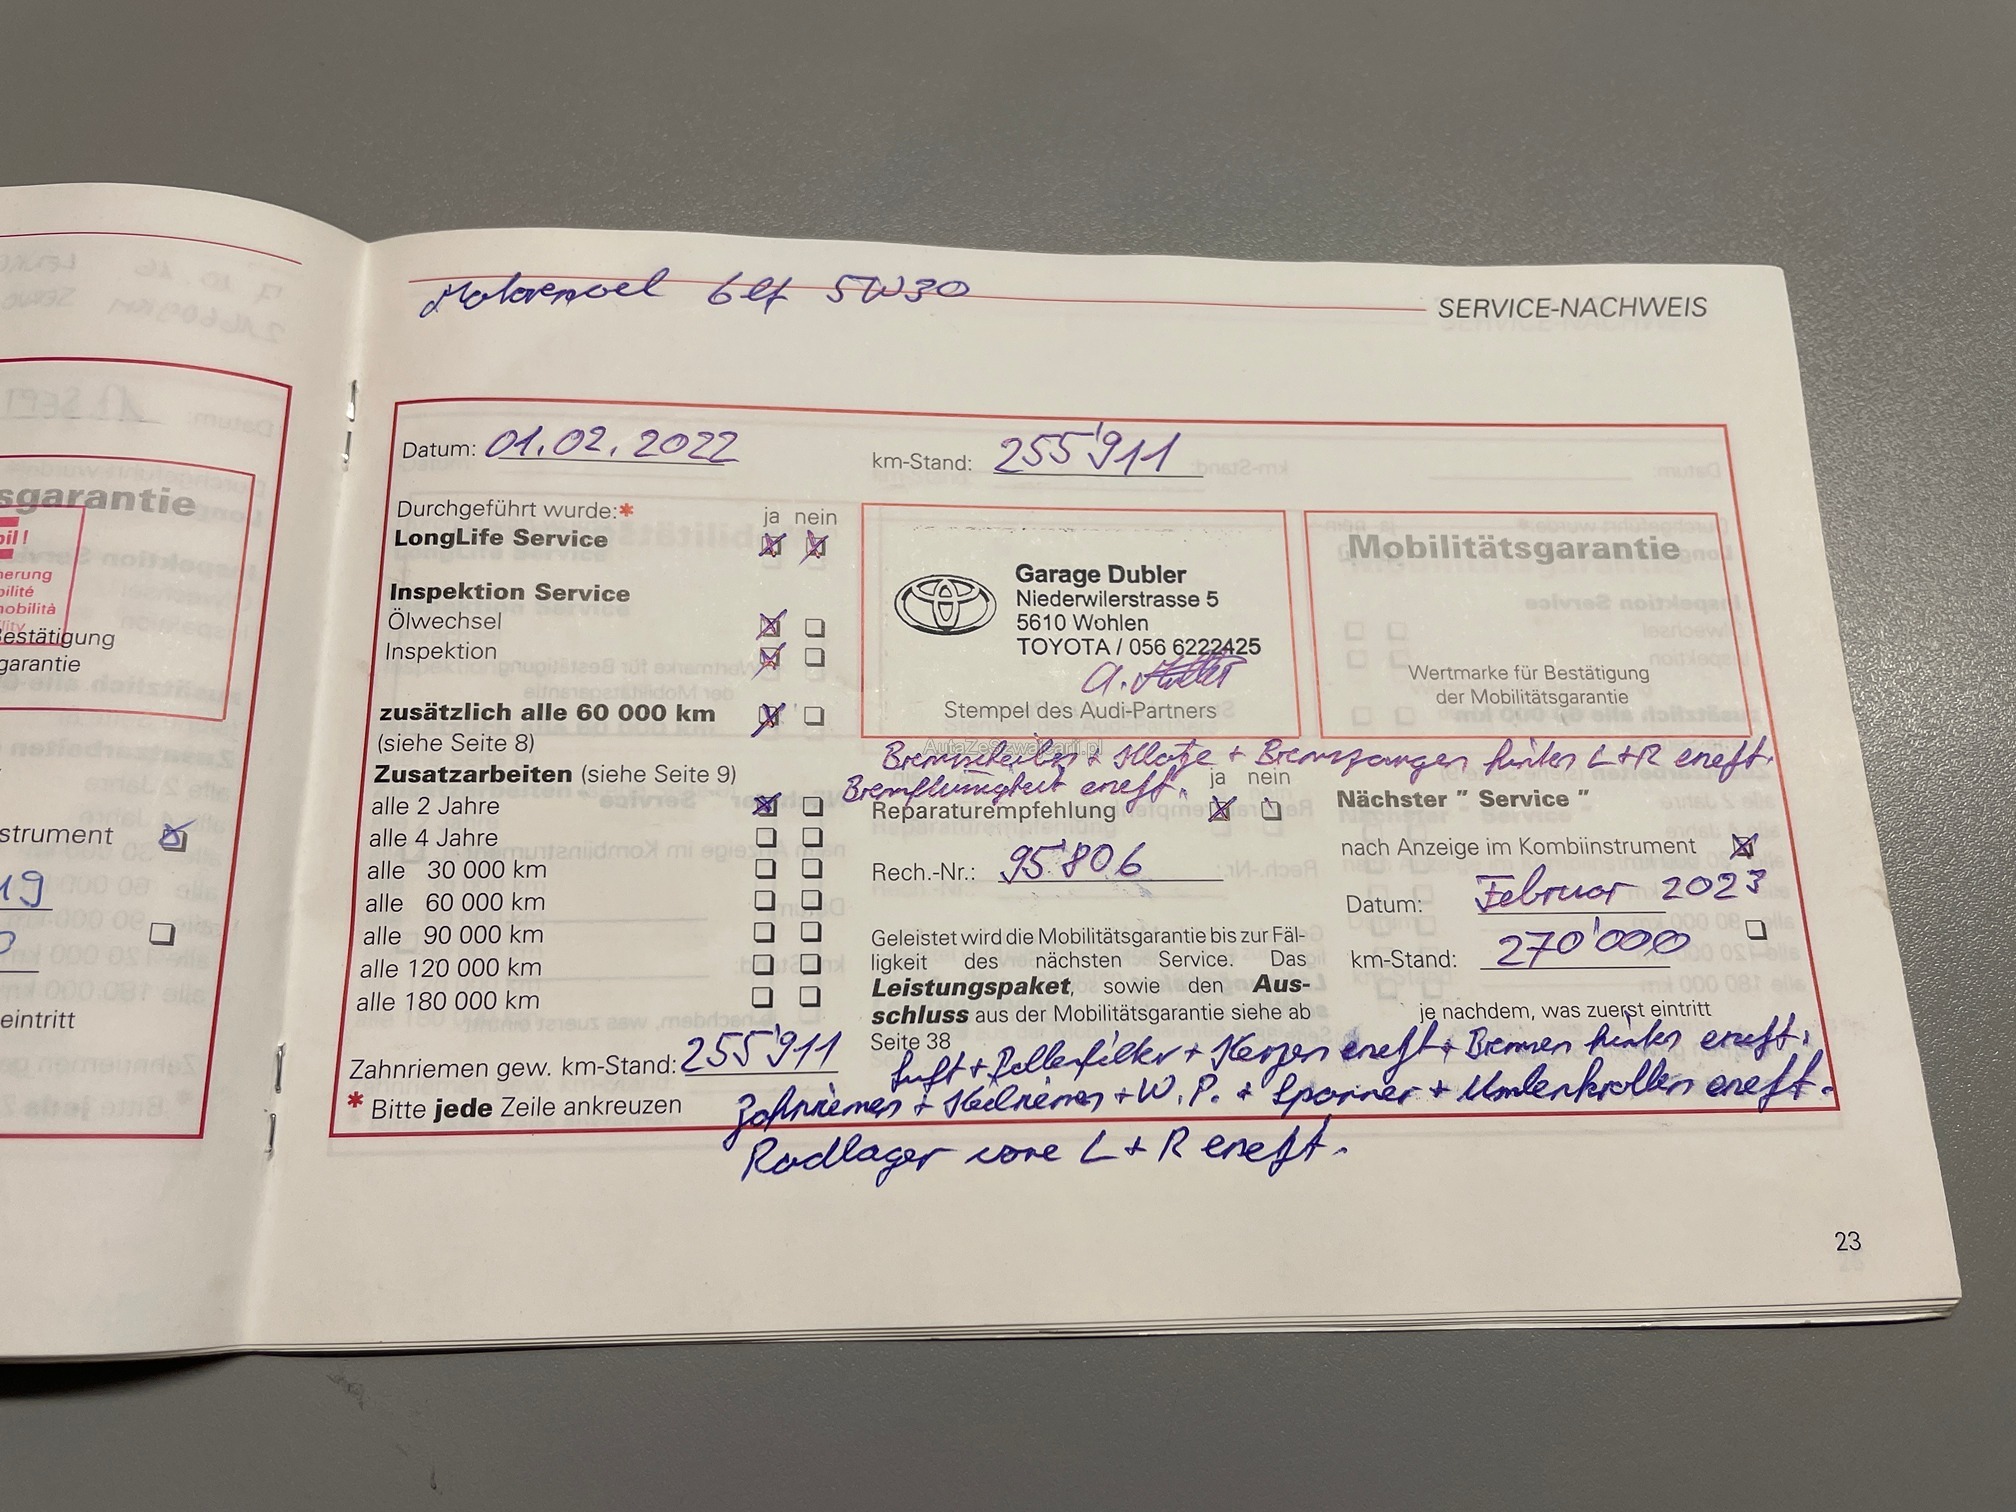 Motorenoel 6lt 5W30
SERVICE-NACHWEIS
Datum: 01.02.2022
km-Stand: 255'911
Durchgeführt wurde:*
ja nein
LongLife Service
Inspektion Service
Ölwechsel
Inspektion
zusätzlich alle 60 000 km
(siehe Seite 8)
Zusatzarbeiten (siehe Seite 9)
alle 2 Jahre
alle 4 Jahre
alle 30 000 km
alle 60 000 km
alle 90 000 km
alle 120 000 km
alle 180 000 km
Zahnriemen gew. km-Stand: 255'911
* Bitte jede Zeile ankreuzen
Garage Dubler
Niederwilerstrasse 5
5610 Wohlen
TOYOTA / 056 6222425
Stempel des Audi-Partners
AutaZeSzwajcarii.pl
Mobilitätsgarantie
Wertmarke für Bestätigung
der Mobilitätsgarantie
Bremscheiben + Klötze + Bremszangen hinten L+R eneft.
Bremflüssigkeit eneft.
ja nein
Reparaturempfehlung
Rech.-Nr.: 95'806
Geleistet wird die Mobilitätsgarantie bis zur Fäl-
ligkeit des nächsten Service. Das
Leistungspaket, sowie den Aus-
schluss aus der Mobilitätsgarantie siehe ab
Seite 38
Nächster " Service "
nach Anzeige im Kombiinstrument
Datum: Februar 2023
km-Stand: 270'000
je nachdem, was zuerst eintritt
Luft + Pollenfilter + Kerzen eneft + Bremsen hinten eneft.
Zahnriemen + Keilriemen + W.P. + Spanner + Umlenkrollen eneft.
Radlager vore L + R eneft.
23
sgarantie
bil!
herung
bilité
mobilità
lity
Bestätigung
garantie
strument
19
eintritt